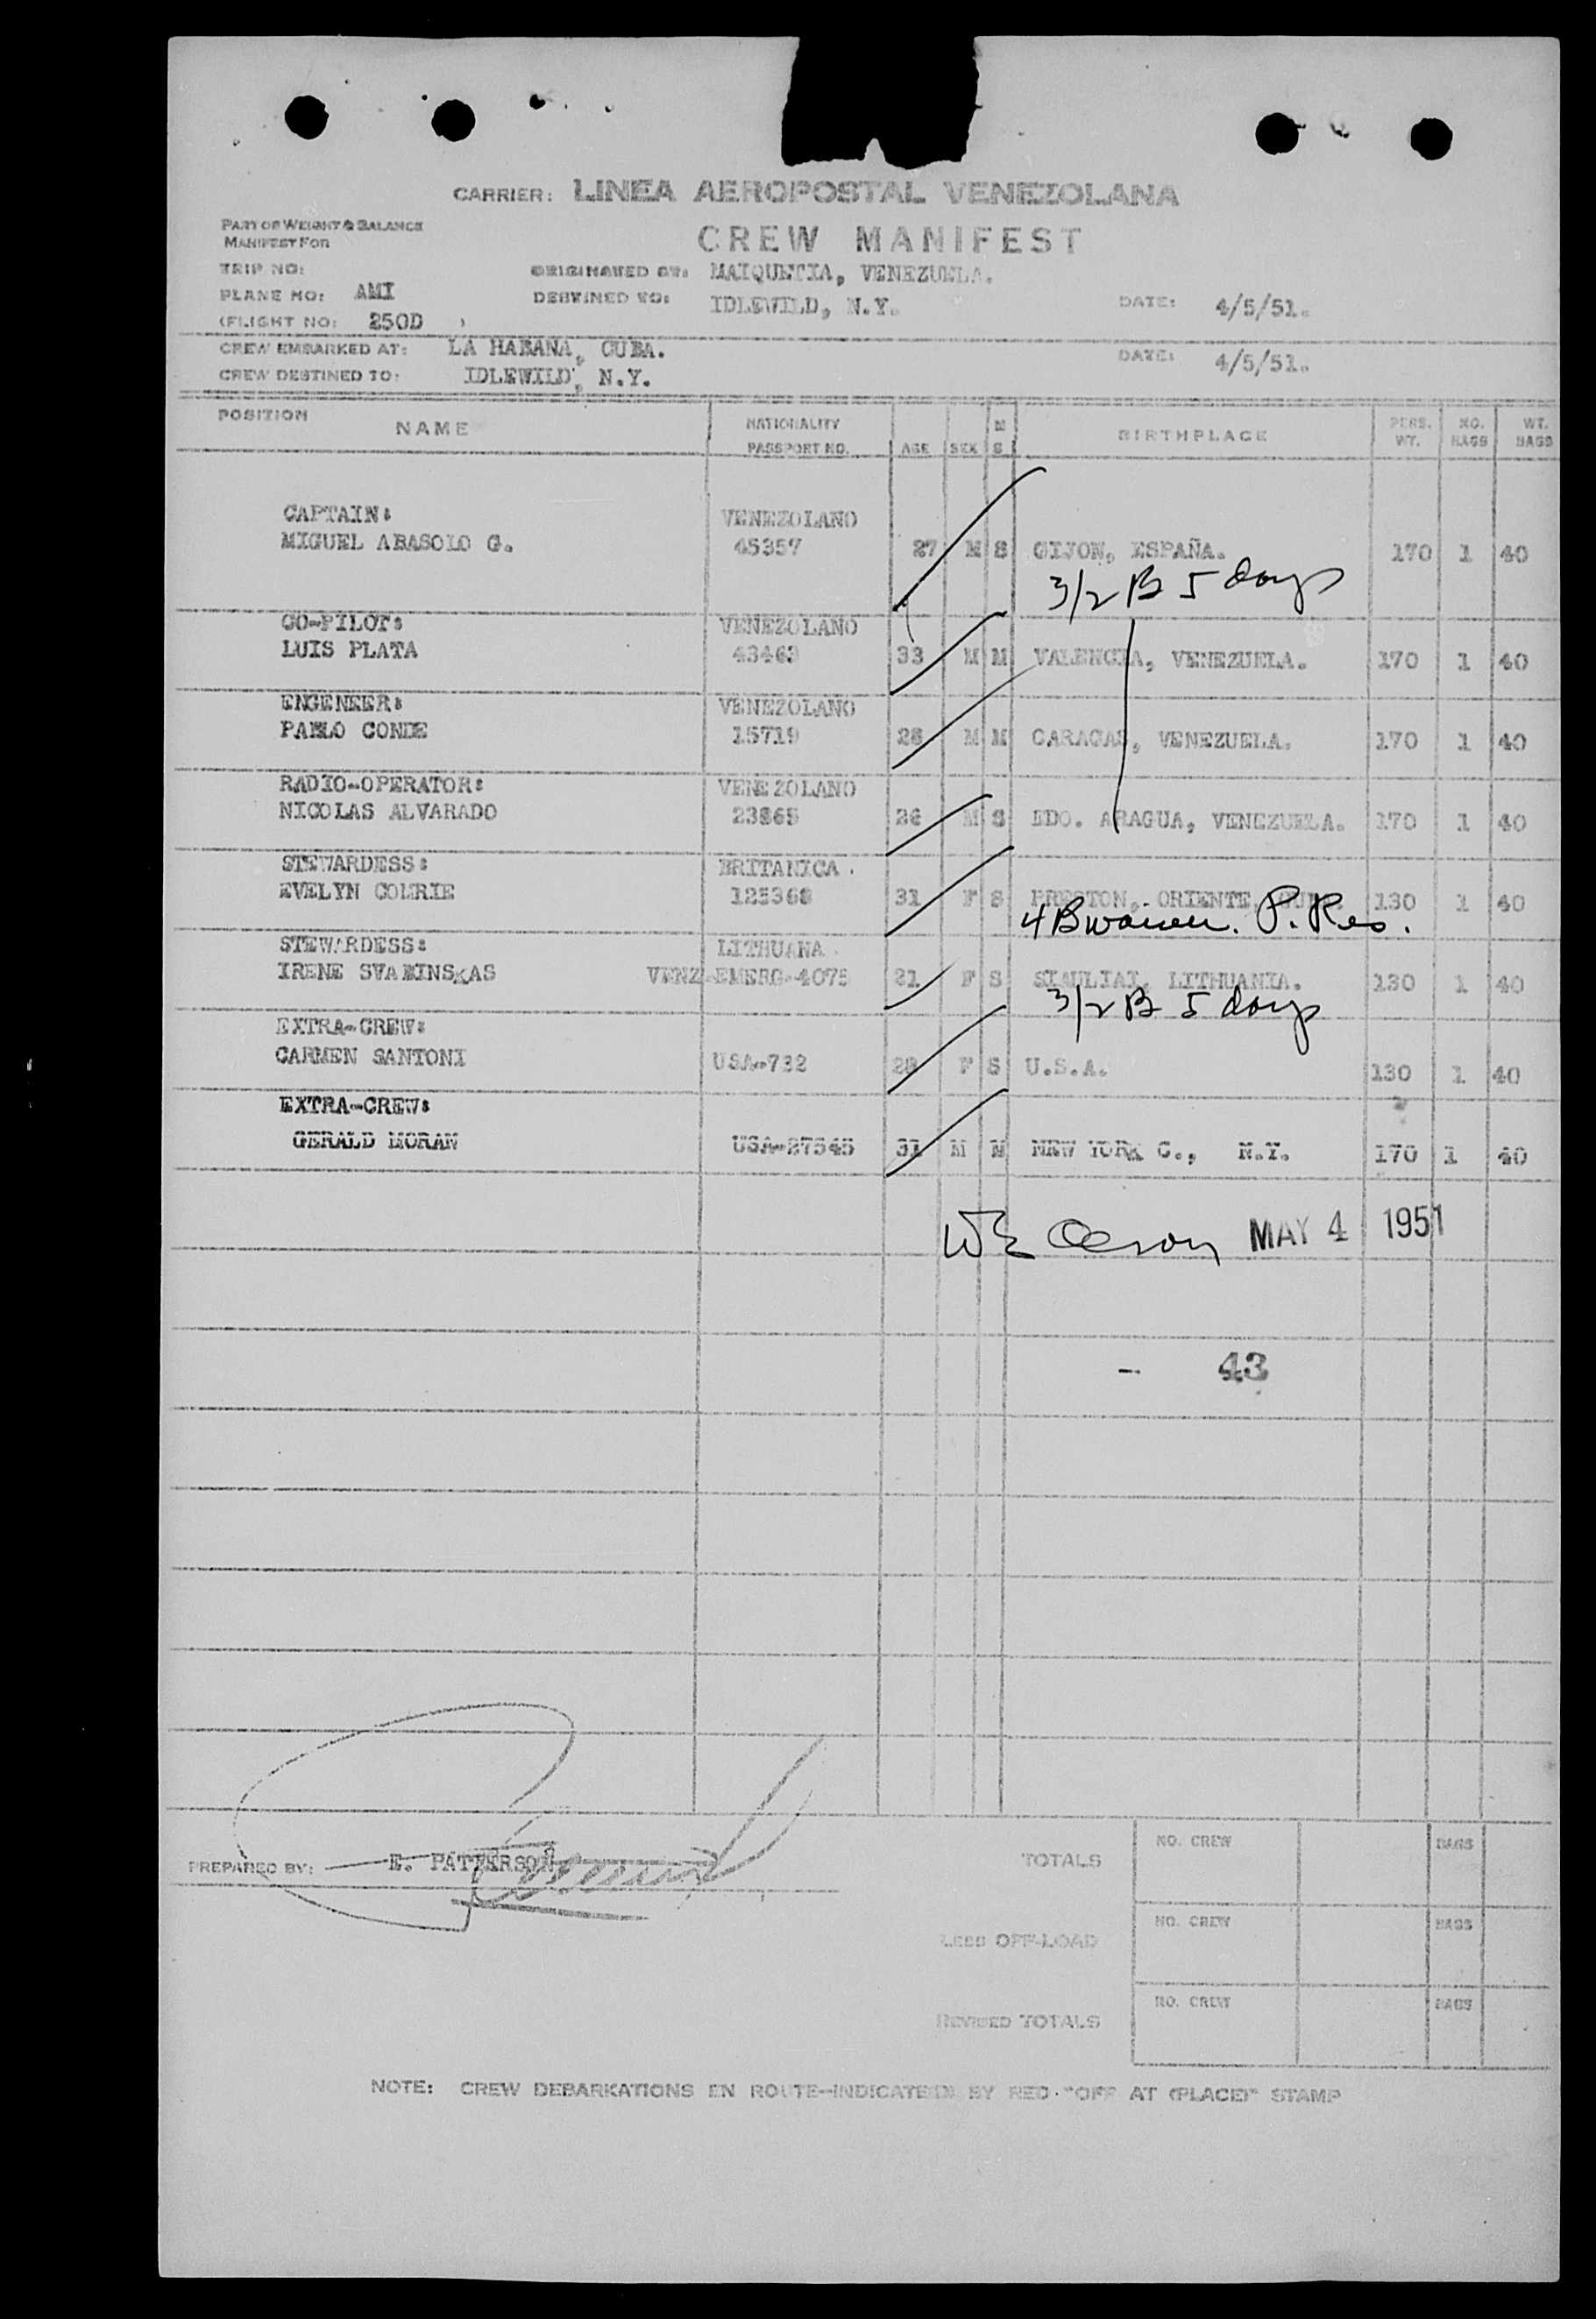 CARRIER: LINEA AEROPOSTAL VENEZOLANA
PART OF WEIGHT & BALANCE
MANIFEST FOR
CREW MANIFEST
TRIP NO: ORIGINATED BY: MAIQUETIA, VENEZUELA.
PLANE NO: AMI DESTINED TO: IDLEWILD, N.Y. DATE: 4/5/51.
(FLIGHT NO: 250D )
CREW EMBARKED AT: LA HABANA, CUBA. DATE: 4/5/51.
CREW DESTINED TO: IDLEWILD, N.Y.
POSITION NAME NATIONALITY PASSPORT NO. AGE SEX M S BIRTHPLACE PERS. WT. NO. BAGS WT. BAGS
CAPTAIN: VENEZOLANO
MIGUEL ABASOLO G. 45357 27 M S GIJON, ESPAÑA. 170 1 40
3/2 B 5 days
CO-PILOT: VENEZOLANO
LUIS PLATA 43463 33 M M VALENCIA, VENEZUELA. 170 1 40
ENGENEER: VENEZOLANO
PABLO CONDE 15719 28 M M CARACAS, VENEZUELA. 170 1 40
RADIO-OPERATOR: VENEZOLANO
NICOLAS ALVARADO 23865 26 M S EDO. ARAGUA, VENEZUELA. 170 1 40
STEWARDESS: BRITANICA.
EVELYN COMRIE 125368 31 F S PRESTON, ORIENTE, 130 1 40
4B P. Res.
STEWARDESS: LITHUANA.
IRENE SVABINSKAS VENZ-EMERG-4075 21 F S SIAULIAI, LITHUANIA. 130 1 40
3/2 B 5 days
EXTRA-CREW:
CARMEN SANTONI USA-732 28 F S U.S.A. 130 1 40
EXTRA-CREW:
GERALD MORAN USA-27545 31 M M NEW YORK C., N.Y. 170 1 40
MAY 4 1951
- 43
PREPARED BY: E. PATTERSON
TOTALS NO. CREW BAGS
LESS OFF-LOAD NO. CREW BAGS
REVISED TOTALS NO. CREW BAGS
NOTE: CREW DEBARKATIONS EN ROUTE-INDICATED IN BY RED "OFF AT (PLACE)" STAMP